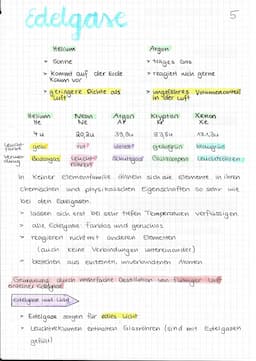 Edelgase
5
Helium
> Sonne
> kommt auf der Erde kaum vor
> geringere Dichte als Luft
Argon
> träges Gas
> reagiert nicht gerne
> ungefähres Volumenanteil in der Luft
Helium Neon Argon Krypton Xenon
He Ne Ar Kr Xe
4u 20,2u 39,9u 83,8u 131,3u
Leucht-farbe gelb rot violett gelbgrün blaugrün
Verwendung Ballongas Leuchtröhren Schutzgas Glühlampen Leuchtröhren
In keiner Elementfamilie ähneln sich die Elemente in ihren
chemischen und physikalischen Eigenschaften so sehr wie
bei den Edelgasen.
> lassen sich erst bei sehr tiefen Temperaturen verflüssigen
> alle Edelgase: farblos und geruchlos
> reagieren nicht mit anderen Elementen
(auch keine Verbindungen untereinander)
> bestehen aus einzelnen unverbundenen Atomen
Gewinnung durch mehrfache Destillation von flüssiger Luft
einzelner Edelgase
Edelgase und Licht
• Edelgase sorgen für edles Licht
• Leuchtreklamen enthalten Glasröhren (sind mit Edelgasen
gefüllt)